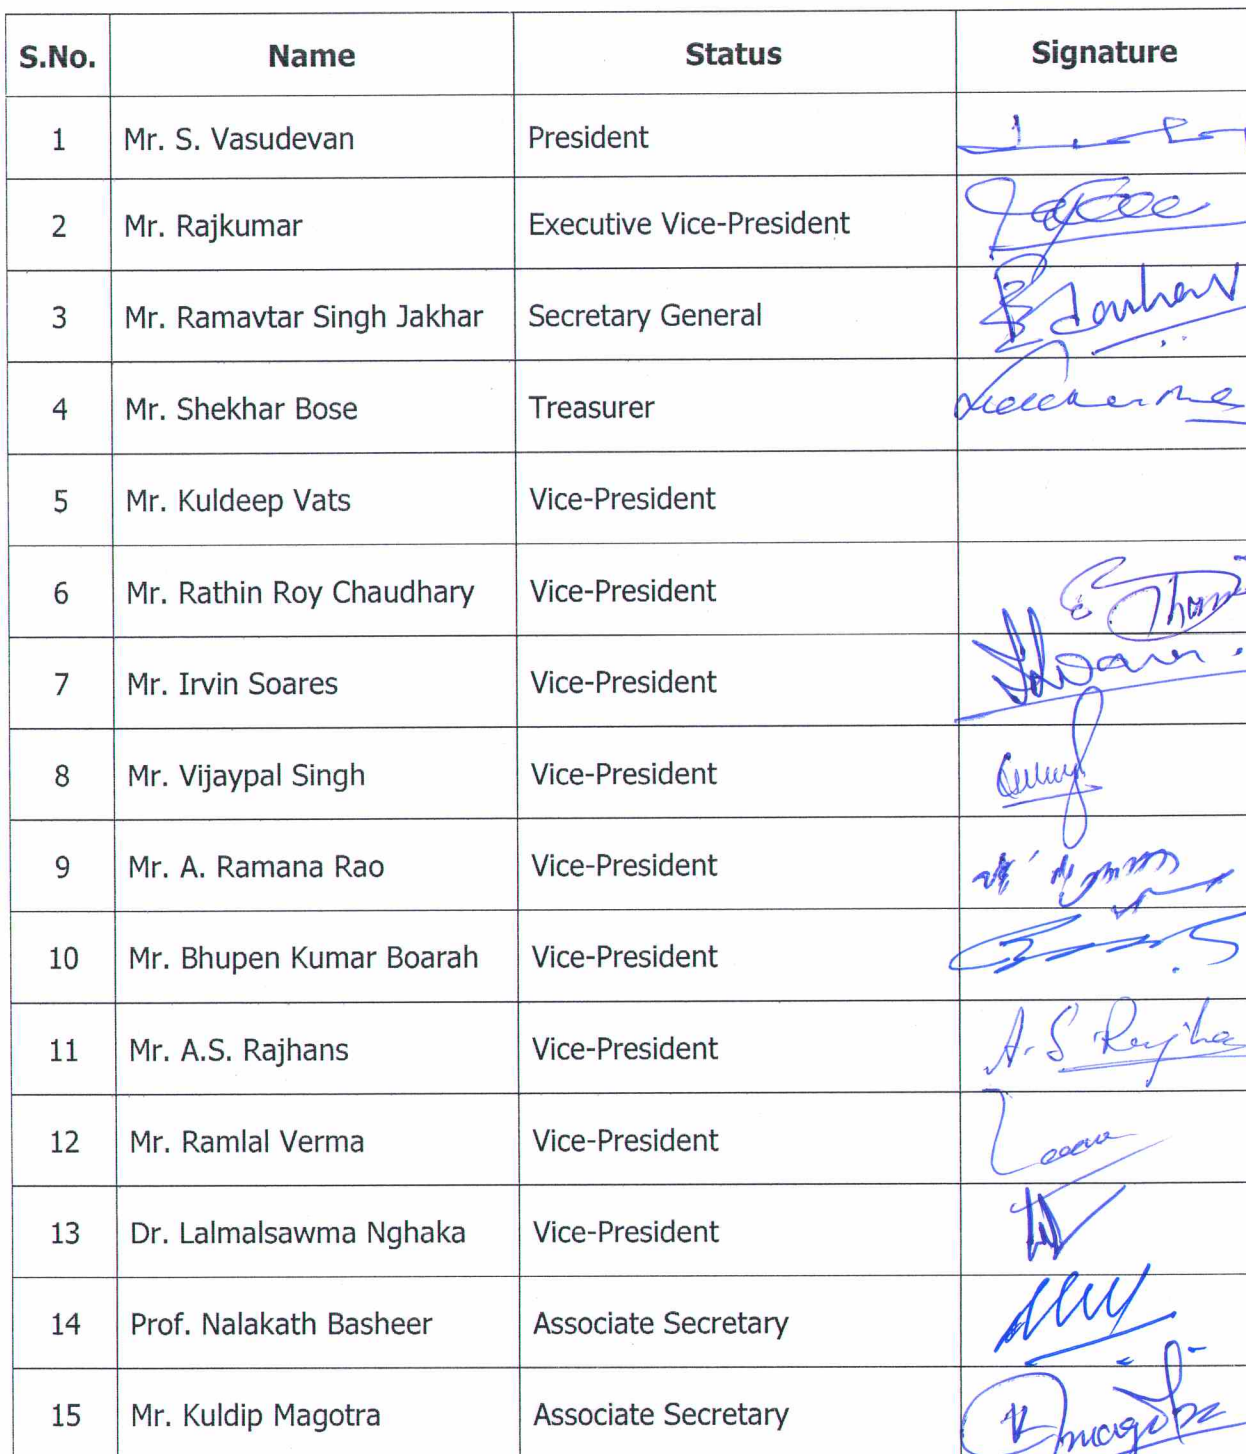 S.No. Name Status Signature
1 Mr. S. Vasudevan President
2 Mr. Rajkumar Executive Vice-President
3 Mr. Ramavtar Singh Jakhar Secretary General
4 Mr. Shekhar Bose Treasurer
5 Mr. Kuldeep Vats Vice-President
6 Mr. Rathin Roy Chaudhary Vice-President
7 Mr. Irvin Soares Vice-President
8 Mr. Vijaypal Singh Vice-President
9 Mr. A. Ramana Rao Vice-President
10 Mr. Bhupen Kumar Boarah Vice-President
11 Mr. A.S. Rajhans Vice-President A.S Rajha
12 Mr. Ramlal Verma Vice-President
13 Dr. Lalmalsawma Nghaka Vice-President
14 Prof. Nalakath Basheer Associate Secretary
15 Mr. Kuldip Magotra Associate Secretary